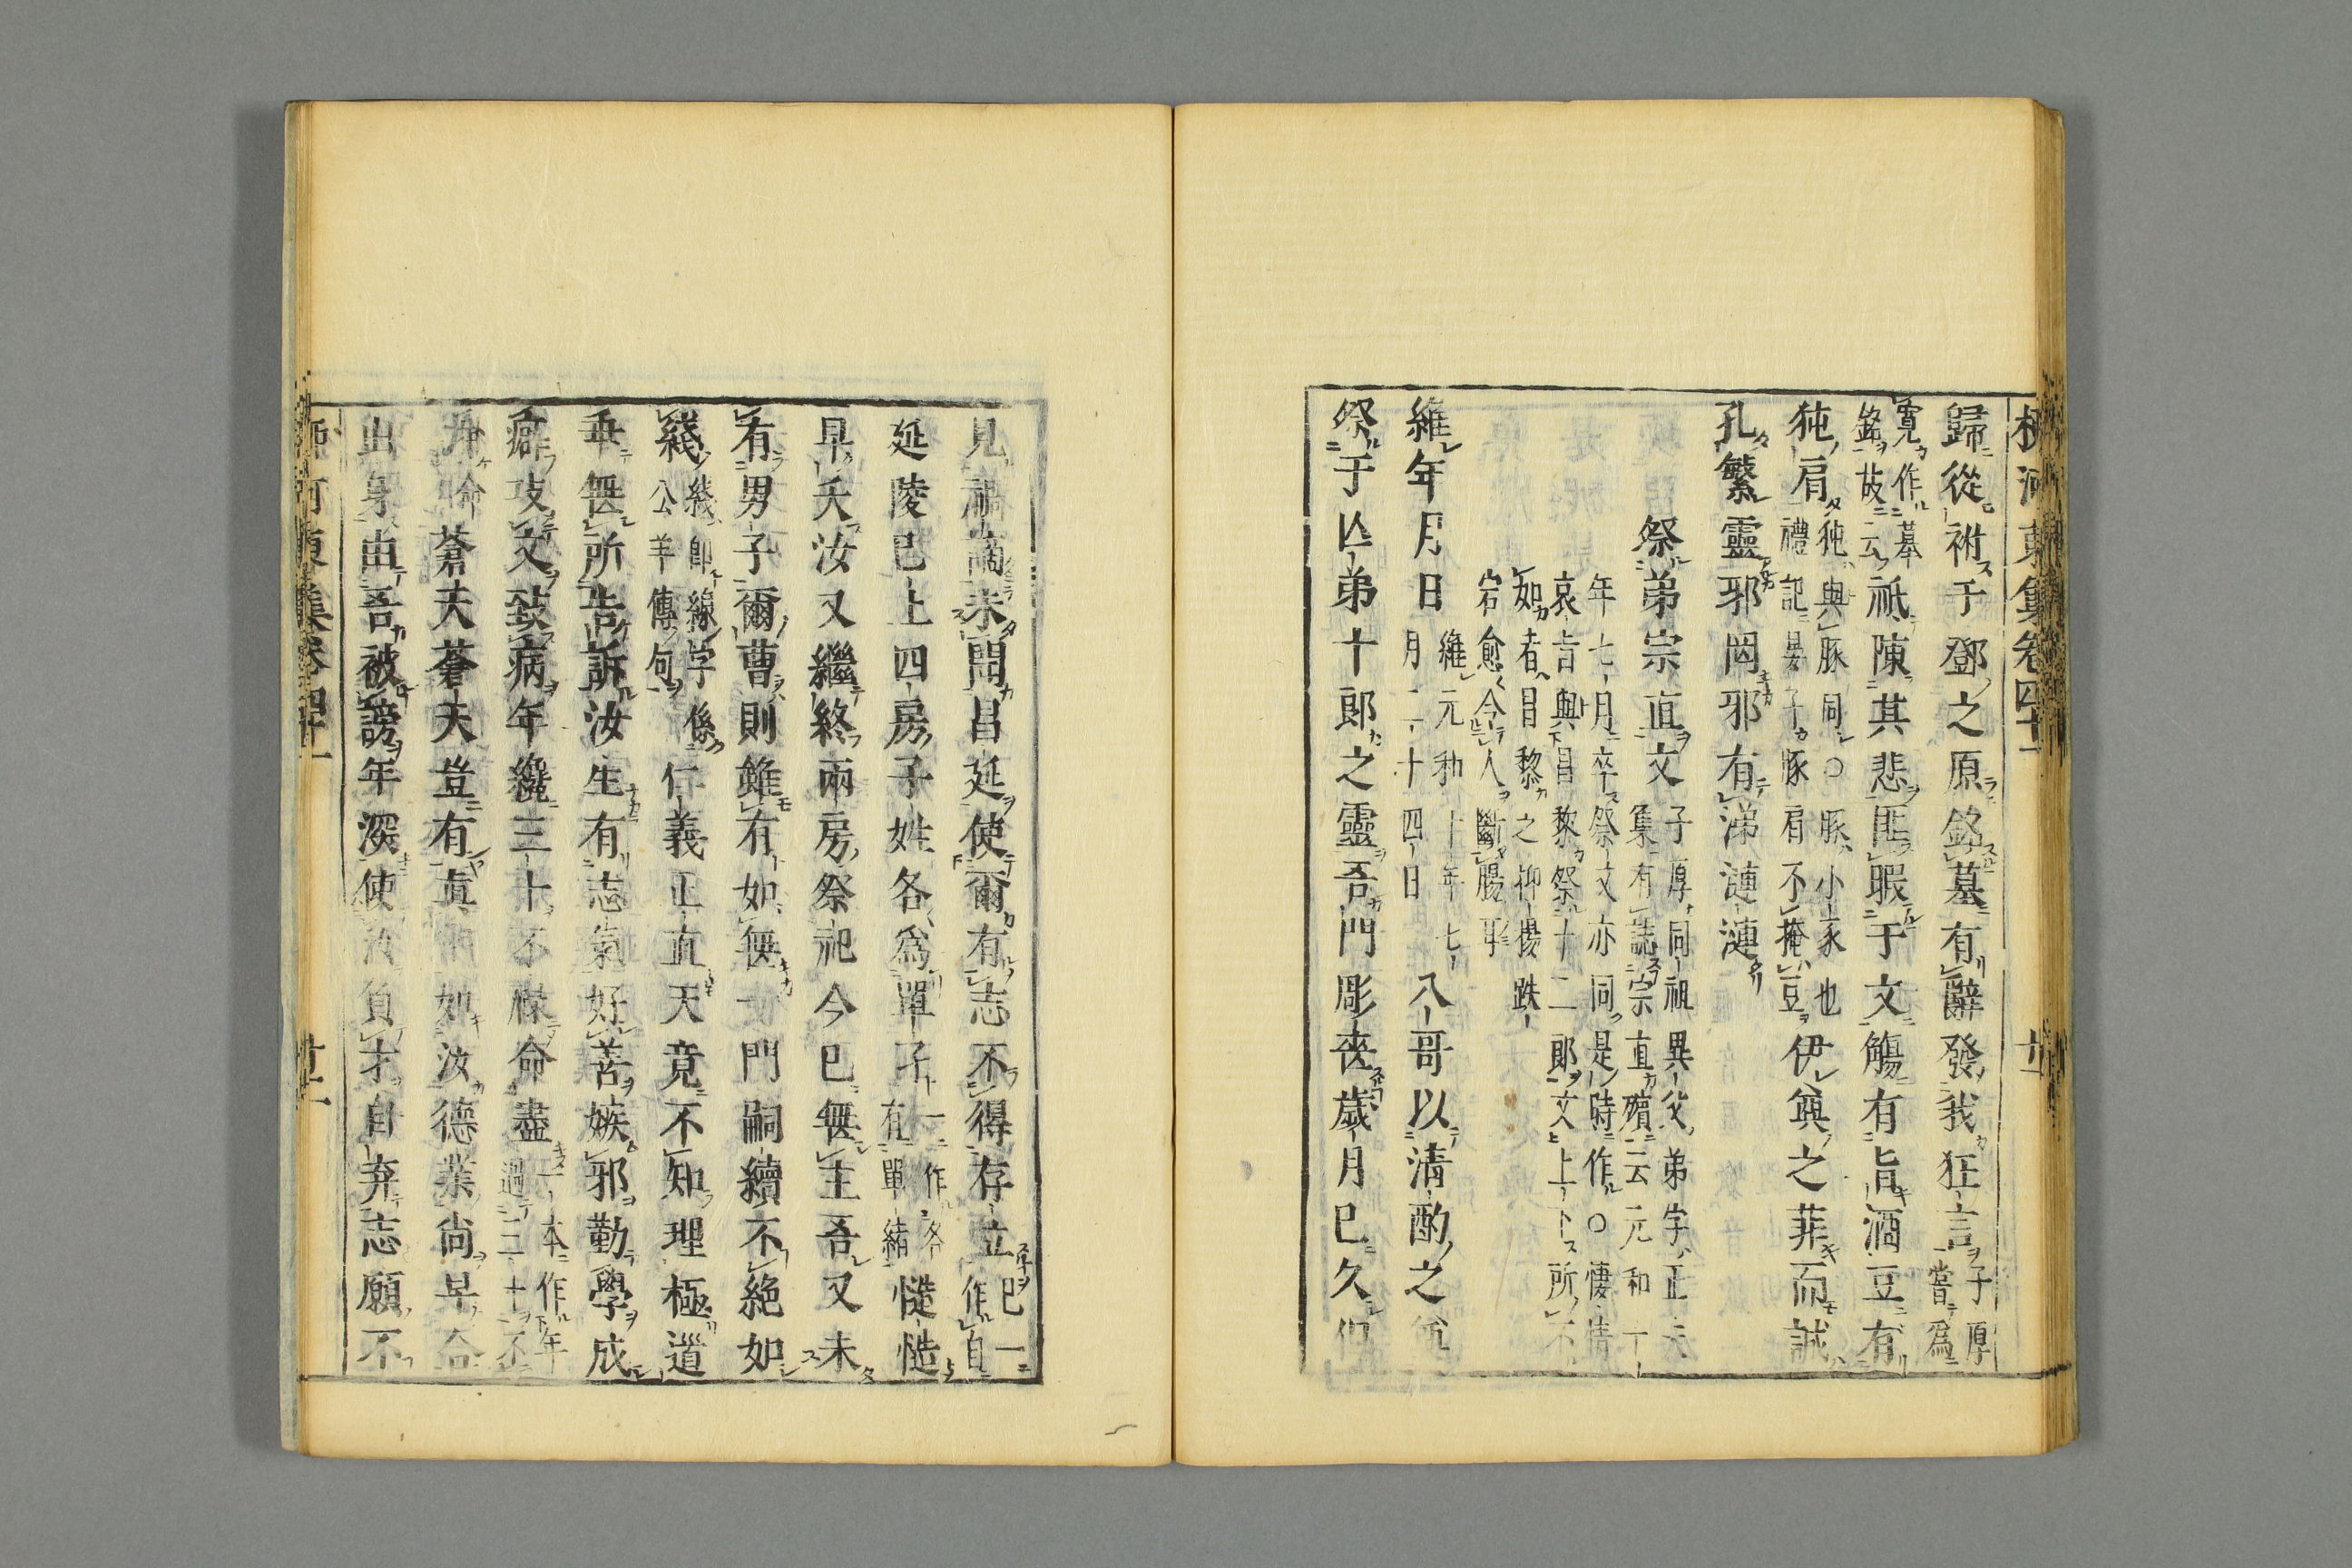 柳河東集卷四十一
歸從祔于鄧之原銘墓有辭發我狂言子厚嘗爲
寛作墓銘故云祇陳其悲匪暇于文觴有旨酒豆有
㹠肩㹠與豚同○豚小豕也禮記晏子豚肩不掩豆伊奠之菲而誠
孔繁靈邪罔邪有涕漣漣
祭弟宗直文子厚同祖異父弟字正夫集有誌宗直殯云元和十
年七月卒祭文亦同是時作○悽情哀吉與昌黎祭十二郎文上下所不
如者昌黎之抑揚跌宕愈令人斷腸耳
維年月日維元和十年七月二十四日八哥以清酌之
祭于亡弟十郎之靈吾門彫喪歲月已久但
見禍謫未聞昌延使爾有志不得存立一作自
延陵已上四房子姓各爲單孑一作各有單緒慥慥
早夭汝又繼終兩房祭祀今已無主吾又未
有男子爾曹則雖有如無一門嗣續不絕如
綫綫即線字僖公羊傳句仁義正直天竟不知理極道
乖無所告訴汝生有志氣好善嫉邪勤學成
癖攻文致病年纔三十不祿命盡一本作年過二十不
蒼天蒼天豈有眞如汝德業尚早合
出身由吾被謗年深使汝負才自弃志願不